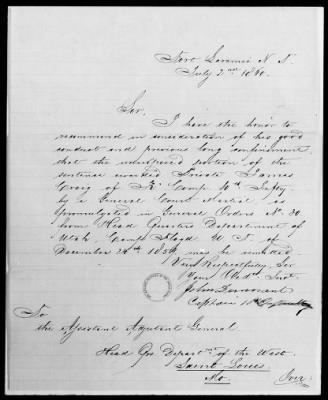 Fort Laramie N. T.
July 2nd 1860.
Sir,
I have the honor to
recommend in consideration of his good
conduct and previous long confinement
that the unexpired portion of the
sentence awarded Private James
Craig of "K" Comp. 10th Infty
by a General Court Martial as
promulgated in General Orders No. 20
from Head Quarters Department of
Utah Camp Floyd U. T. of
December 24th 1859 may be remitted.
Very Respectfully, Sir
Your Obdt. Svt.
John Dunovant
Captain 10th Infantry
To
the Assistant Adjutant General
Head Qrs. Departmt. of the West.
Saint Louis
Mo.
Over